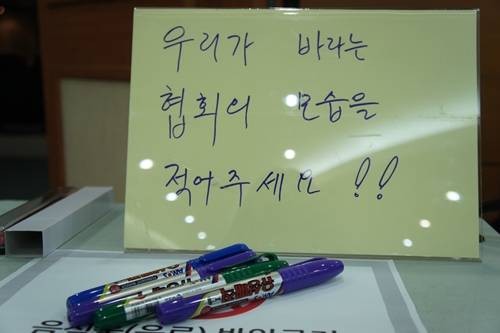 우리가 바라는
협회의 모습을
적어주세요 !!